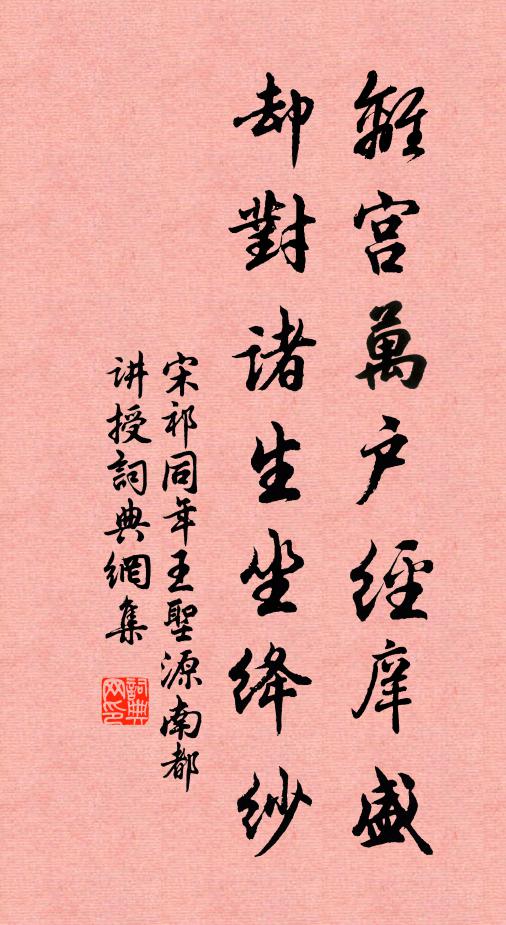 離宮萬户經庠盛
却對诸生坐绛紗
宋祁同年王聖源南都
讲授詞典網集
詞典網印